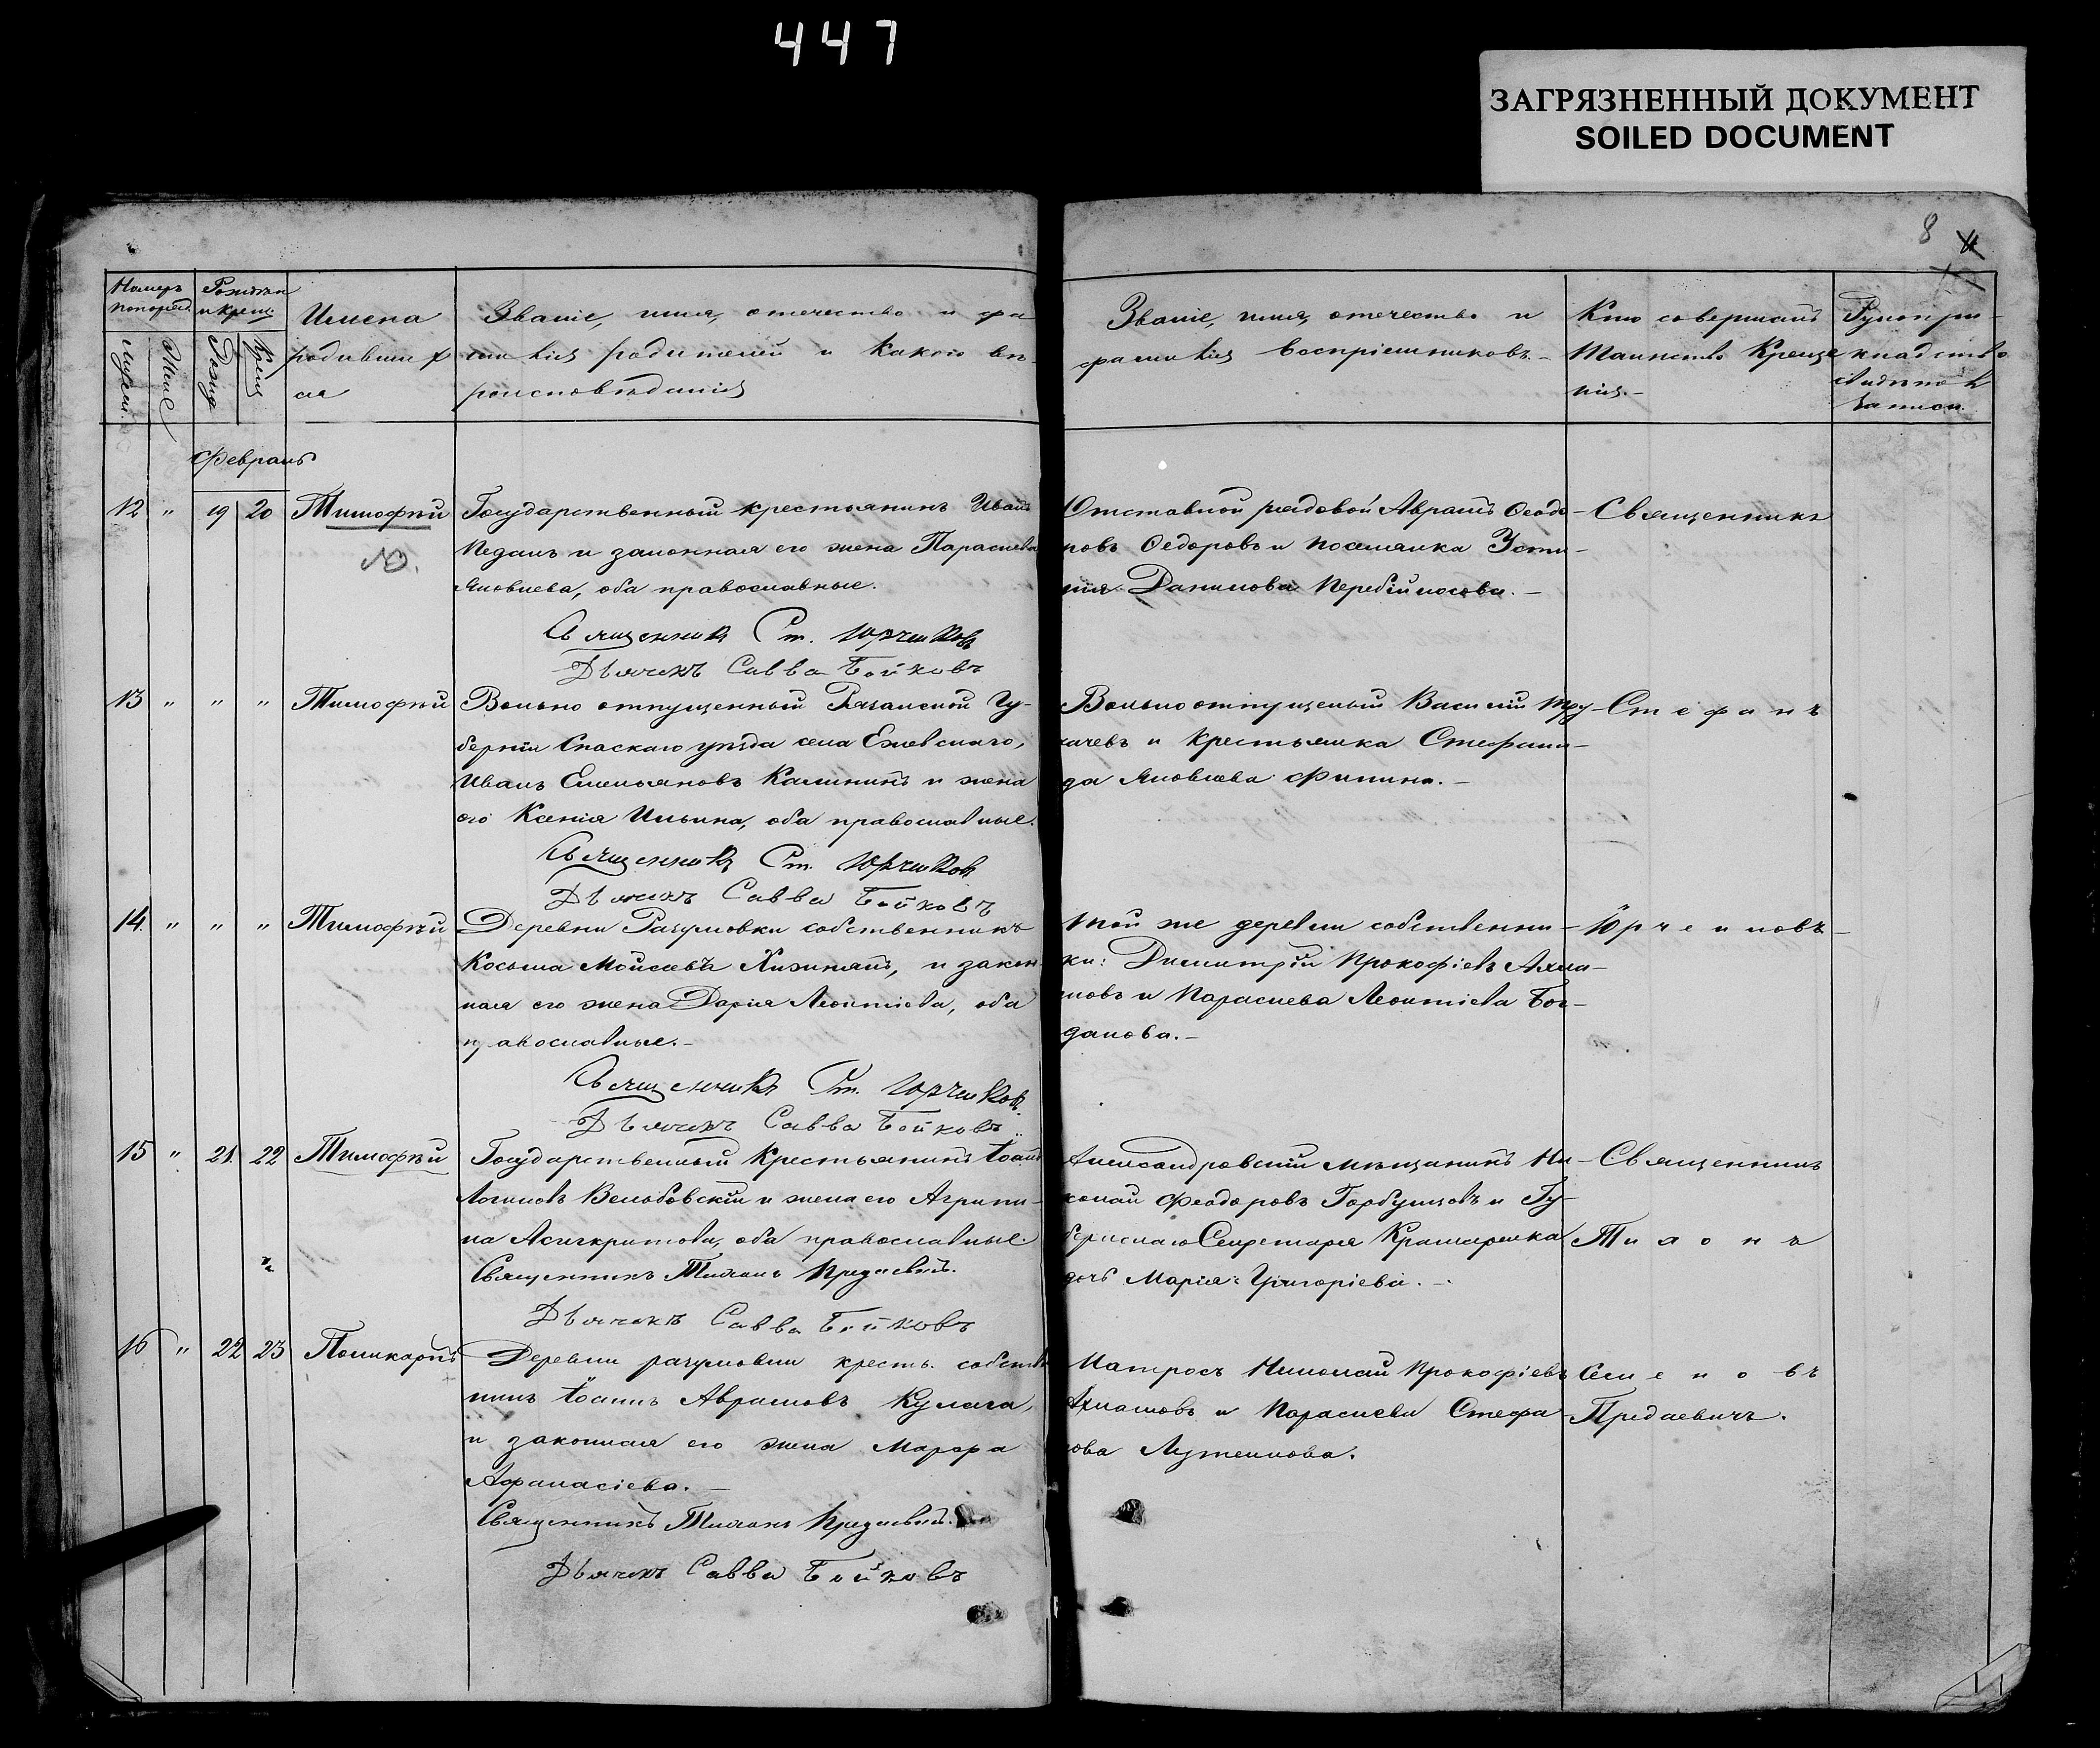 447
ЗАГРЯЗНЕННЫЙ ДОКУМЕНТ
SOILED DOCUMENT
8
Номеръ
Имена
родивших
ся
Званіе, имя, отечество и фа
милія родителей и какого вѣ-
роисповѣданія
Званіе, имя, отечество и
фамилія воспріемниковъ.-
Кто совершалъ
Таинство Креще
нія.-
Рукопри-
кладство
Февраль
12 " 19 20 Тимофѣй
Государственный крестьянинъ Иванъ
Педанъ и законная его жена Параскева
Яковлева, оба православные.
Священникъ Ст. Юрченков
Дьячекъ Савва Бойковъ
Отставной рядовой Аврамъ Ѳеодо-
ровъ Ѳедоровъ и поселянка Усти-
нія Данилова Перебійносова.-
Священникъ
13 " " " Тимофѣй
Вольно отпущенный Рязанской Гу-
берніи Спаскаго уѣзда села
Иванъ Емельяновъ Калининъ и жена
его Ксенія Ильина, оба православные.
Священникъ Ст. Юрченков
Дьячекъ Савва Бойковъ
Вольноотпущеный Василій
и крестьянка Стефани-
да Яковлева Филина.-
Стефанъ
14. " " " Тимофѣй
Деревни Разумовки собственникъ
Косьма Моисеевъ и закон-
ная его жена Дарія Леонтіева, оба
православные.-
Священникъ Ст. Юрченков
Дьячекъ Савва Бойковъ
той же деревни собственни-
ки: Димитрій Прокофіевъ
и Параскева Леонтіева Бог-
данова.-
Юрченковъ
15 " 21. 22 Тимофѣй
Государственный Крестьянинъ Іоаннъ
Логиновъ и жена его Агрипи-
на Асигкритова, оба православные.
Священникъ Тихонъ
Дьячекъ Савва Бойковъ
Александровскій мѣщанинъ Ни-
колай Феодоровъ Горбунцовъ и Гу-
бернскаго Секретаря
дочь Марія Григоріева.-
Священникъ
Тихонъ
16 " 22 23 Поликарпъ
Деревни разумовки кресть. собств
Іоаннъ Аврамовъ Кулага,
и законная его жена Марфа
Афанасіева.-
Священникъ Тихонъ
Дьячекъ Савва Бойковъ
Матросъ Николай Прокофіевъ
и Параскева Стефа
нова
Семеновъ
Предаевичъ.